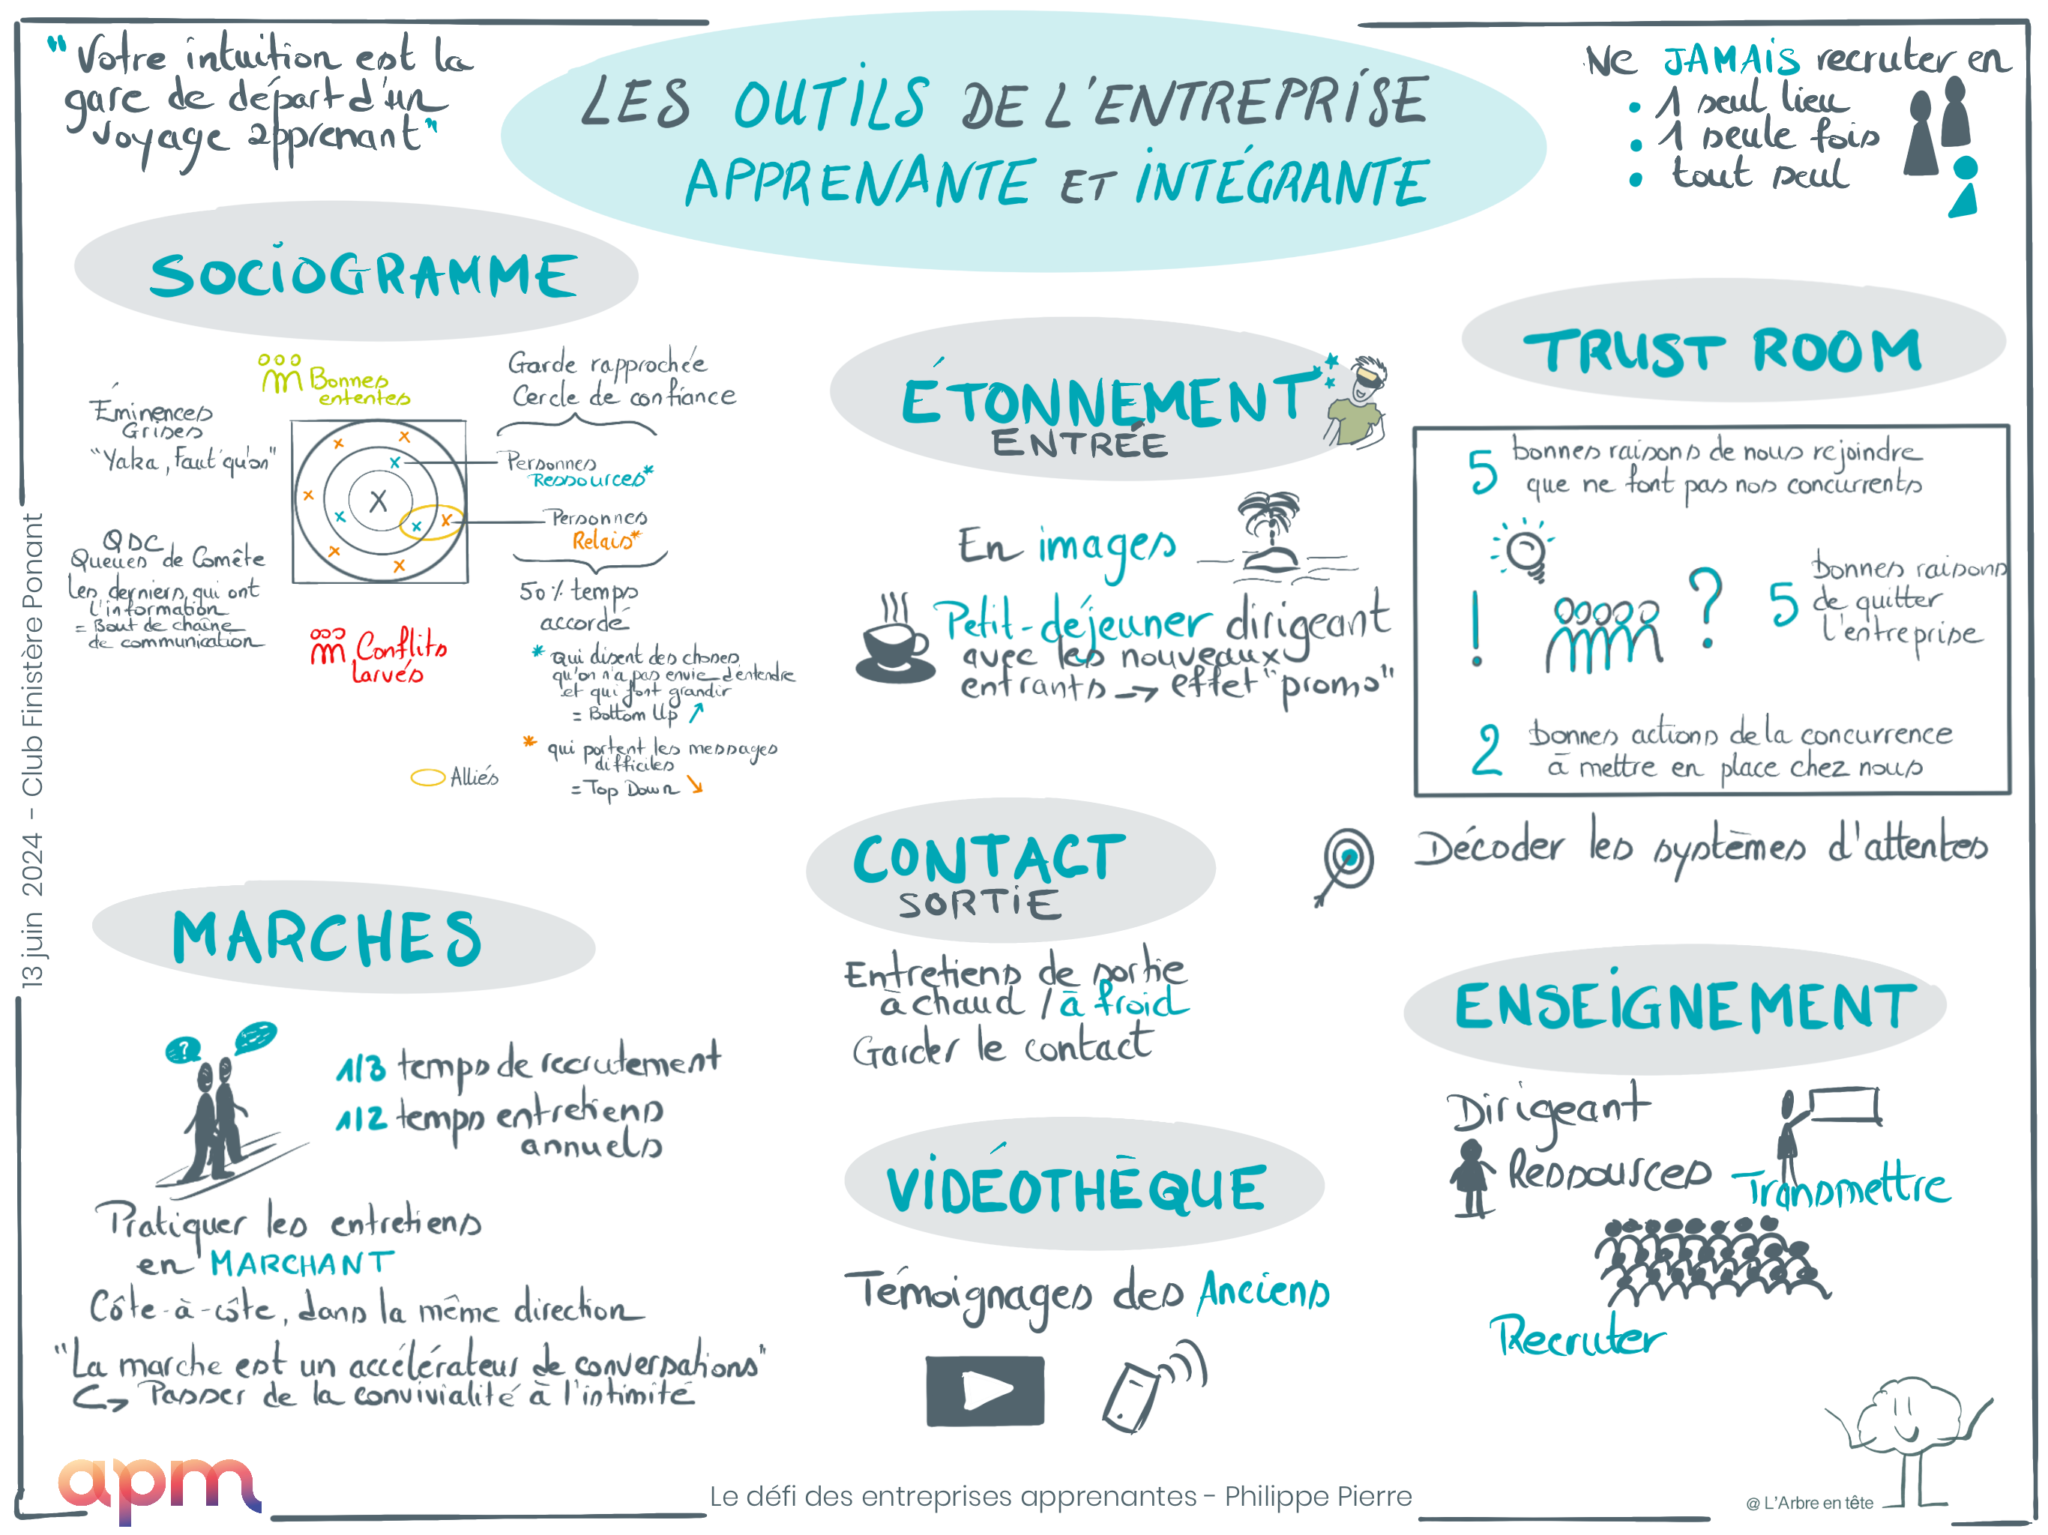 "Votre intuition est la
gare de départ d'un
voyage apprenant"
LES OUTILS DE L'ENTREPRISE
APPRENANTE ET INTÉGRANTE
Ne JAMAIS recruter en
• 1 seul lieu
• 1 seule fois
• tout seul
SOCIOGRAMME
Bonnes
ententes
Éminences
Grises
"Yaka, Faut qu'on"
QDC
Queues de Comète
Les derniers qui ont
l'information
= Bout de chaîne
de communication
Conflits
larvés
Garde rapprochée
Cercle de confiance
Personnes
Ressources*
Personnes
Relais*
50% temps
accordé
* qui disent des choses
qu'on n'a pas envie d'entendre
et qui font grandir
= Bottom Up ↗
* qui portent les messages
difficiles
= Top Down ↘
Alliés
ÉTONNEMENT
ENTRÉE
En images
Petit-déjeuner dirigeant
avec les nouveaux
entrants → effet "promo"
TRUST ROOM
5 bonnes raisons de nous rejoindre
que ne font pas nos concurrents
! ?
5 bonnes raisons
de quitter
l'entreprise
2 bonnes actions de la concurrence
à mettre en place chez nous
Décoder les systèmes d'attentes
MARCHES
?
1/3 temps de recrutement
1/2 temps entretiens
annuels
Pratiquer les entretiens
en MARCHANT
Côte-à-côte, dans la même direction
"La marche est un accélérateur de conversations"
↳ Passer de la convivialité à l'intimité
CONTACT
SORTIE
Entretiens de sortie
à chaud / à froid
Garder le contact
VIDÉOTHÈQUE
Témoignages des Anciens
ENSEIGNEMENT
Dirigeant
Ressources
Transmettre
Recruter
13 juin 2024 - Club Finistère Ponant
apm
Le défi des entreprises apprenantes - Philippe Pierre
@ L'Arbre en tête